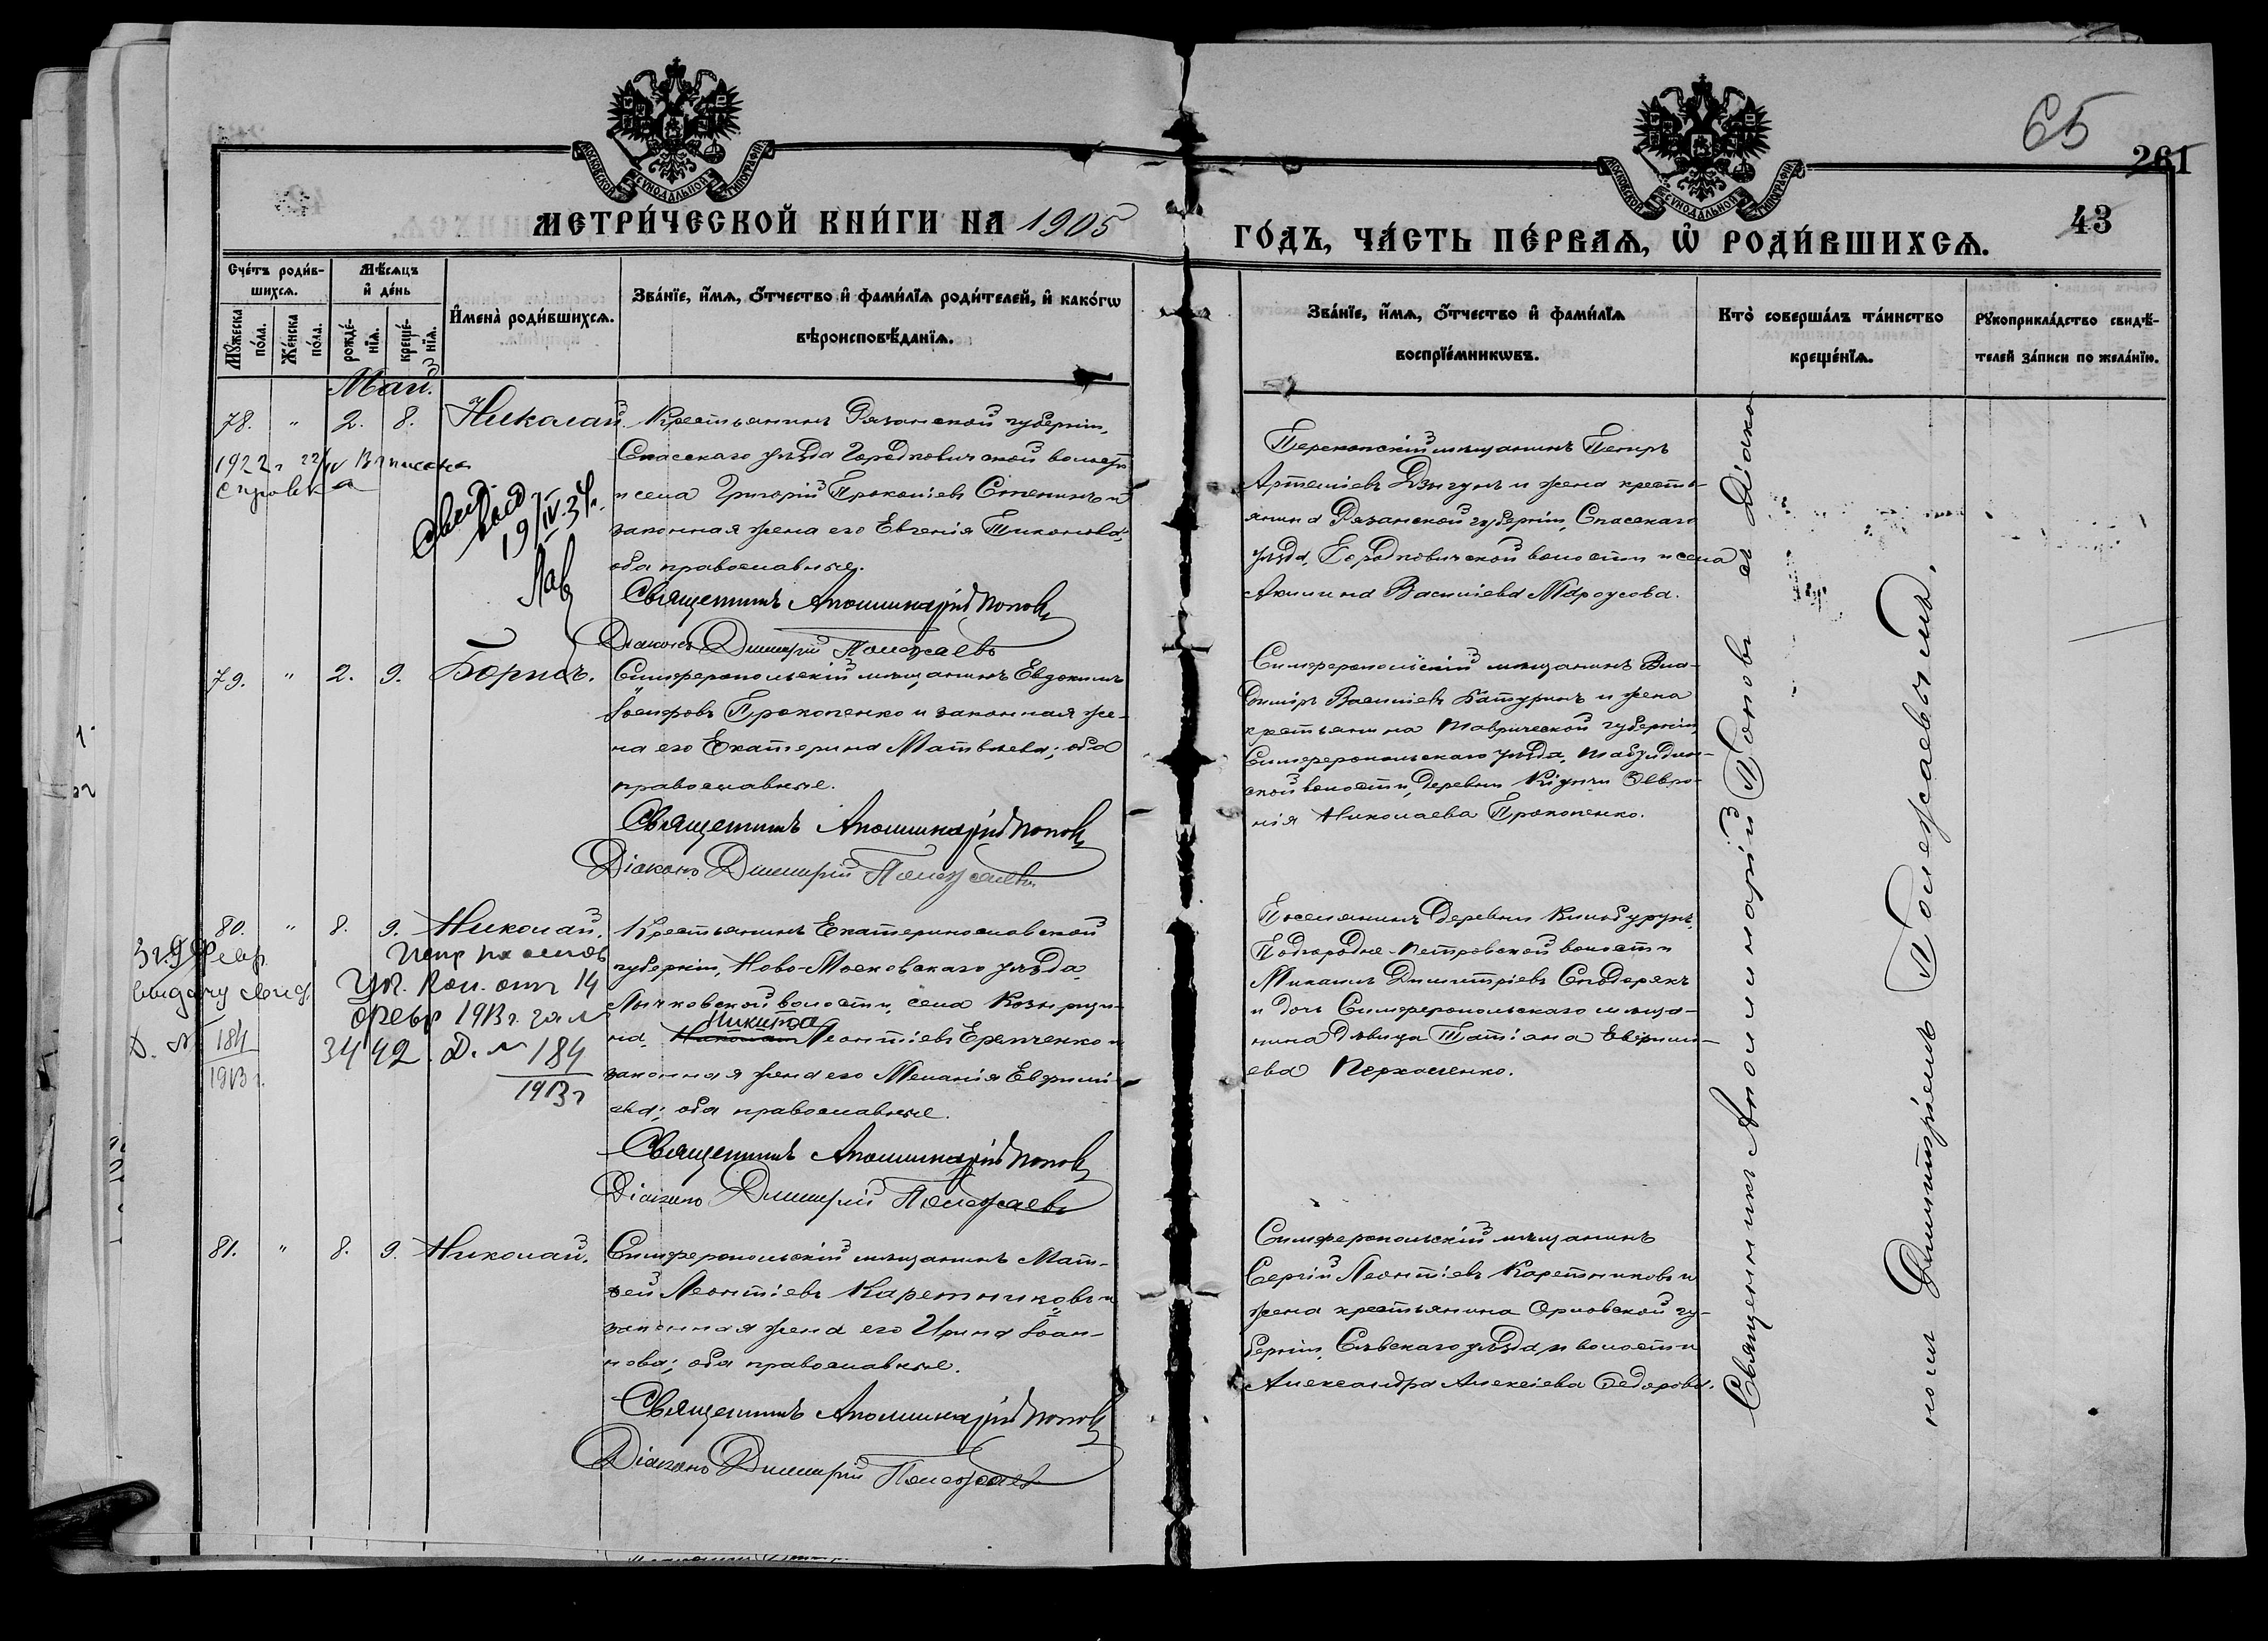 65
261
43
МОСКОВСКОЙ СУНОДАЛЬНОЙ ТИПОГРАФІИ
МОСКОВСКОЙ СУНОДАЛЬНОЙ ТИПОГРАФІИ
МЕТРИ́ЧЕСКОЙ КНИ́ГИ НА 1905
ГО́ДЪ, ЧА́СТЬ ПЕ́РВАѦ, Ѡ҆ РОДИ́ВШИХСѦ.
Сче́тъ роди́в-
шихсѧ.
Мꙋ́жеска по́ла.
Же́нска по́ла.
Мѣ́сѧцъ
и҆ де́нь
рожде́-
нїѧ.
креще́-
нїѧ.
И҆мена̀ роди́вшихсѧ.
Зва́нїе, и҆́мѧ, ѻ҆́тчество и҆ фами́лїѧ роди́телей, и҆ како́гѡ
вѣроисповѣ́данїѧ.
Зва́нїе, и҆́мѧ, ѻ҆́тчество и҆ фами́лїѧ
воспрїе́мникѡвъ.
Кто̀ соверша́лъ та́инство
креще́нїѧ.
Рꙋкоприкла́дство свидѣ́-
телей за́писи по жела́нїю.
Май.
78. " 2. 8. Николай.
1922 г 22/IV Выписана
справка
Свид.
выд
19/IV.34.
Крестьянинъ Рязанской губерніи,
Спасскаго уѣзда Городковичской волости
и села Григорій Прокопіевъ Стенинъ и
законная жена его Евгенія Тихонова,
оба православные.
Священникъ Аполлинарій Поповъ
Діаконъ Димитрій Полежаевъ
Перекопскій мѣщанинъ Петръ
Артеміевъ Дзыгунъ и жена кресть-
янина Рязанской губерніи, Спасскаго
уѣзда, Городковичской волости и села
Акилина Василіева Мароусова.
79. " 2. 9. Борисъ.
Симферопольскій мѣщанинъ Евдокимъ
Іосифовъ Прокопенко и законная же-
на его Екатерина Матвѣева; оба
православные.
Священникъ Аполлинарій Поповъ
Діаконъ Димитрій Полежаевъ
Симферопольскій мѣщанинъ Вла-
димiръ Василіевъ Батуринъ и жена
крестьянина Таврической губерніи,
Симферопольскаго уѣзда, Табулдин-
ской волости, деревни Февро-
нія Николаева Прокопенко.
80. " 8. 9. Николай.
Д. № 184
1913 г.
Ук. Кон. отъ 14
февр 1913 г. за №
3442. Д. № 184
1913 г
Крестьянинъ Екатеринославской
губерніи, Ново-Московскаго уѣзда,
Лычковской волости, села Козырщи-
Никита
на, Николай Леонтіевъ Еремченко и
законная жена его Меланія Евфимі-
ева; оба православные.
Священникъ Аполлинарій Поповъ
Діаконъ Димитрій Полежаевъ
Поселянинъ деревни Кильбурунъ,
Подгородне-Петровской волости
Михаилъ Димитріевъ Сподарякъ
и дочь Симферопольскаго мѣща-
нина дѣвица Татіана Евфимі-
ева Пархоменко.
81. " 8. 9. Николай.
Симферопольскій мѣщанинъ Мат-
ѳей Леонтіевъ Каретниковъ и
законная жена его Ирина Іоан-
нова; оба православные.
Священникъ Аполлинарій Поповъ
Діаконъ Димитрій Полежаевъ
Симферопольскій мѣщанинъ
Сергій Леонтіевъ Каретниковъ и
жена крестьянина Орловской гу-
берніи, Сѣвскаго уѣзда, и волости
Александра Алексіева Федорова.
Священникъ Аполлинарій Поповъ съ Діако-
номъ Димитріемъ Полежаевымъ.